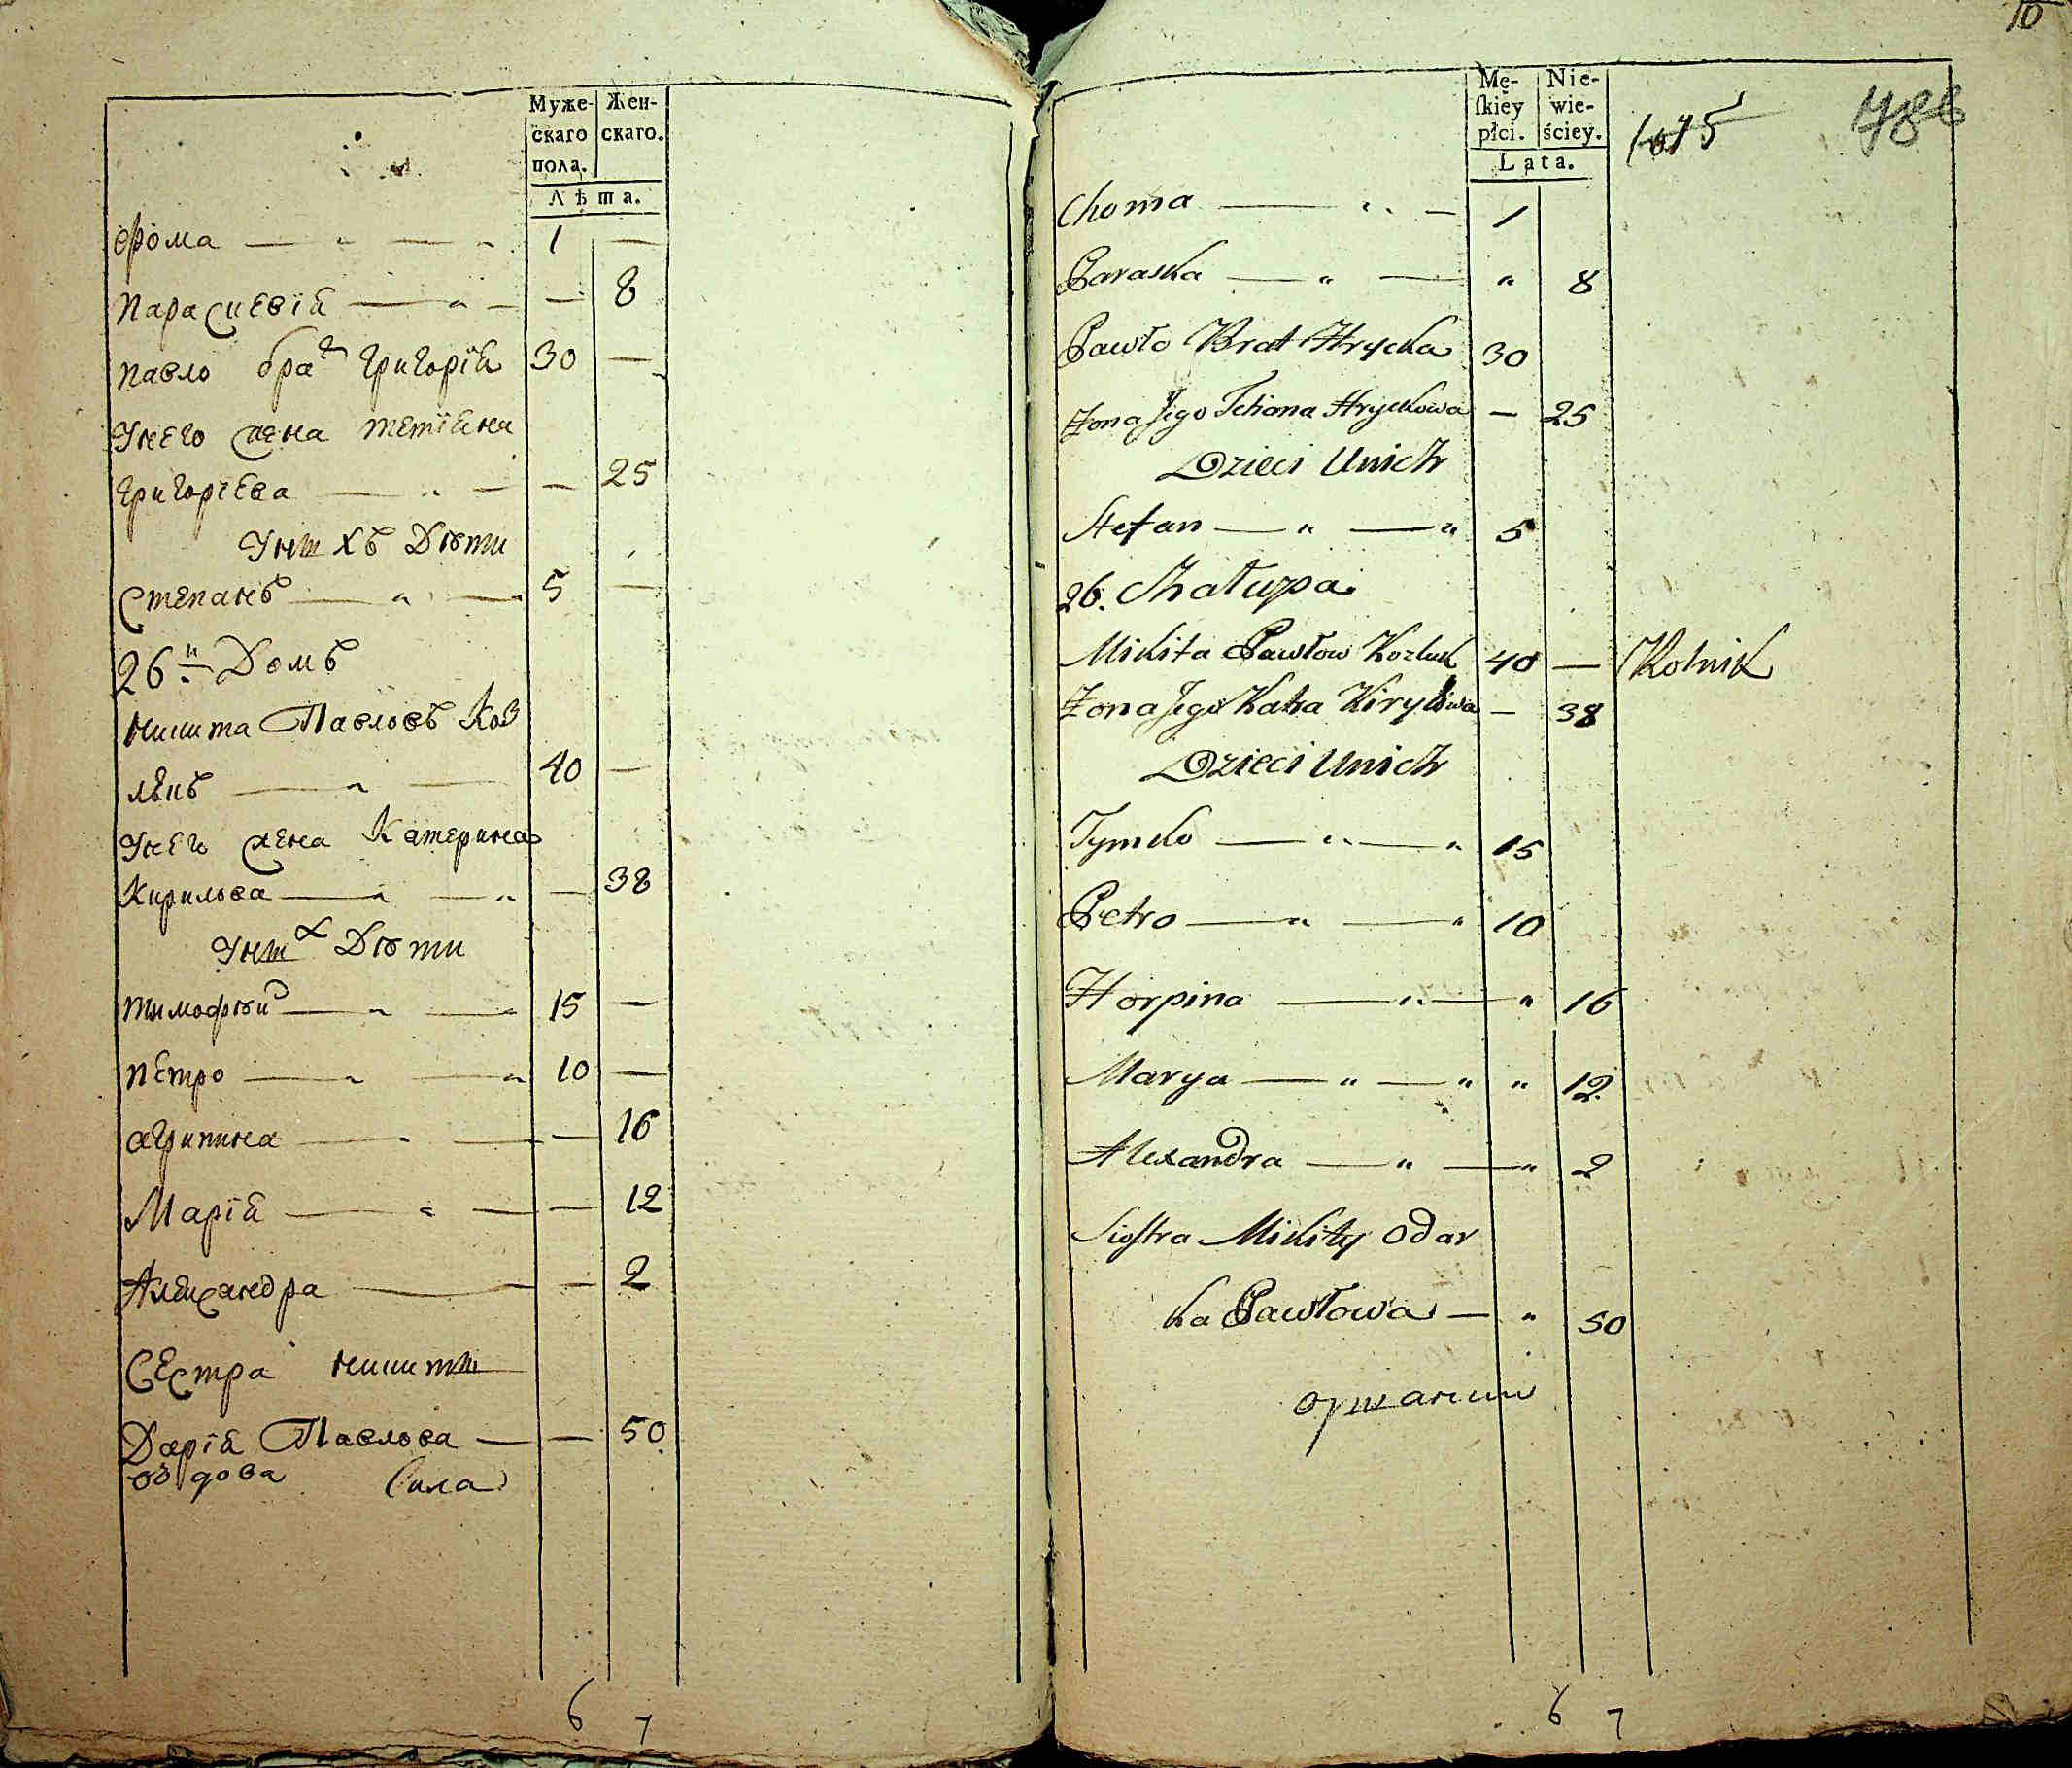 Муже- Жен-
скаго скаго.
пола.
Лѣта.
Фома — „ — „ 1 —
Параскевія — „ — — 8
Павло братъ Григорія 30 —
Унего жена Тетіяна
Григорієва — „ — — 25
Уныхъ Дѣти
Степанъ — „ — 5 —
26й Домъ
Никита Павловъ Коз
лѣкъ — „ — 40 —
Унего жена Катерина
Кирилова — „ — „ — 38
Уных Дѣти
Тимофѣй — „ — 15 —
Петро — „ — „ 10 —
Агрипина — „ — — 16
Марія — „ — — 12
Александра — — 2
Сестра Никиты
Дарія Павлова — — 50
вдова
6 7
10
Mę- Nie-
ſkiéy wie-
płci. ściey.
Lata.
1075 488
Choma — „ — 1
Paraska — „ — „ 8
Pawło Brat Hrycka 30
Żona Jego Tetiana Hryckowa — 25
Dzieci Unich
Stefan — „ — „ 5
26. Chałupa.
Mikita Pawłow Kozluk 40 — Rolnik
Żona Jego Katra Kiryłowa — 38
Dzieci Unich
Tymko — „ — „ 15
Petro — „ — „ 10
Horpina — „ — „ 16
Marya — „ — „ „ 12
Alexandra — „ — „ 2
Siostra Mikity Odar
ka Pawłowa — „ 50
6 7